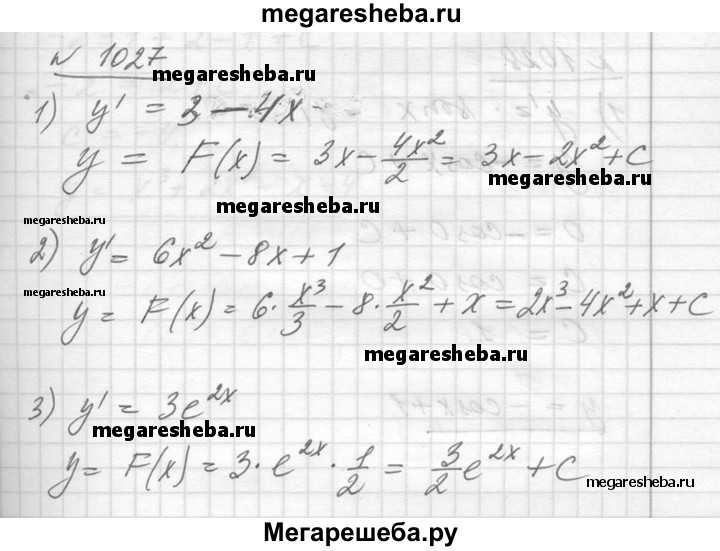 megaresheba.ru
№ 1027
megaresheba.ru
1) y' = 3 - 4x
y = F(x) = 3x - 4x²/2 = 3x - 2x² + C
megaresheba.ru
megaresheba.ru
megaresheba.ru
2) y' = 6x² - 8x + 1
megaresheba.ru
y = F(x) = 6·x³/3 - 8·x²/2 + x = 2x³ - 4x² + x + C
megaresheba.ru
3) y' = 3e^2x
megaresheba.ru
y = F(x) = 3·e^2x·1/2 = 3/2 e^2x + C
megaresheba.ru
Мегарешеба.ру